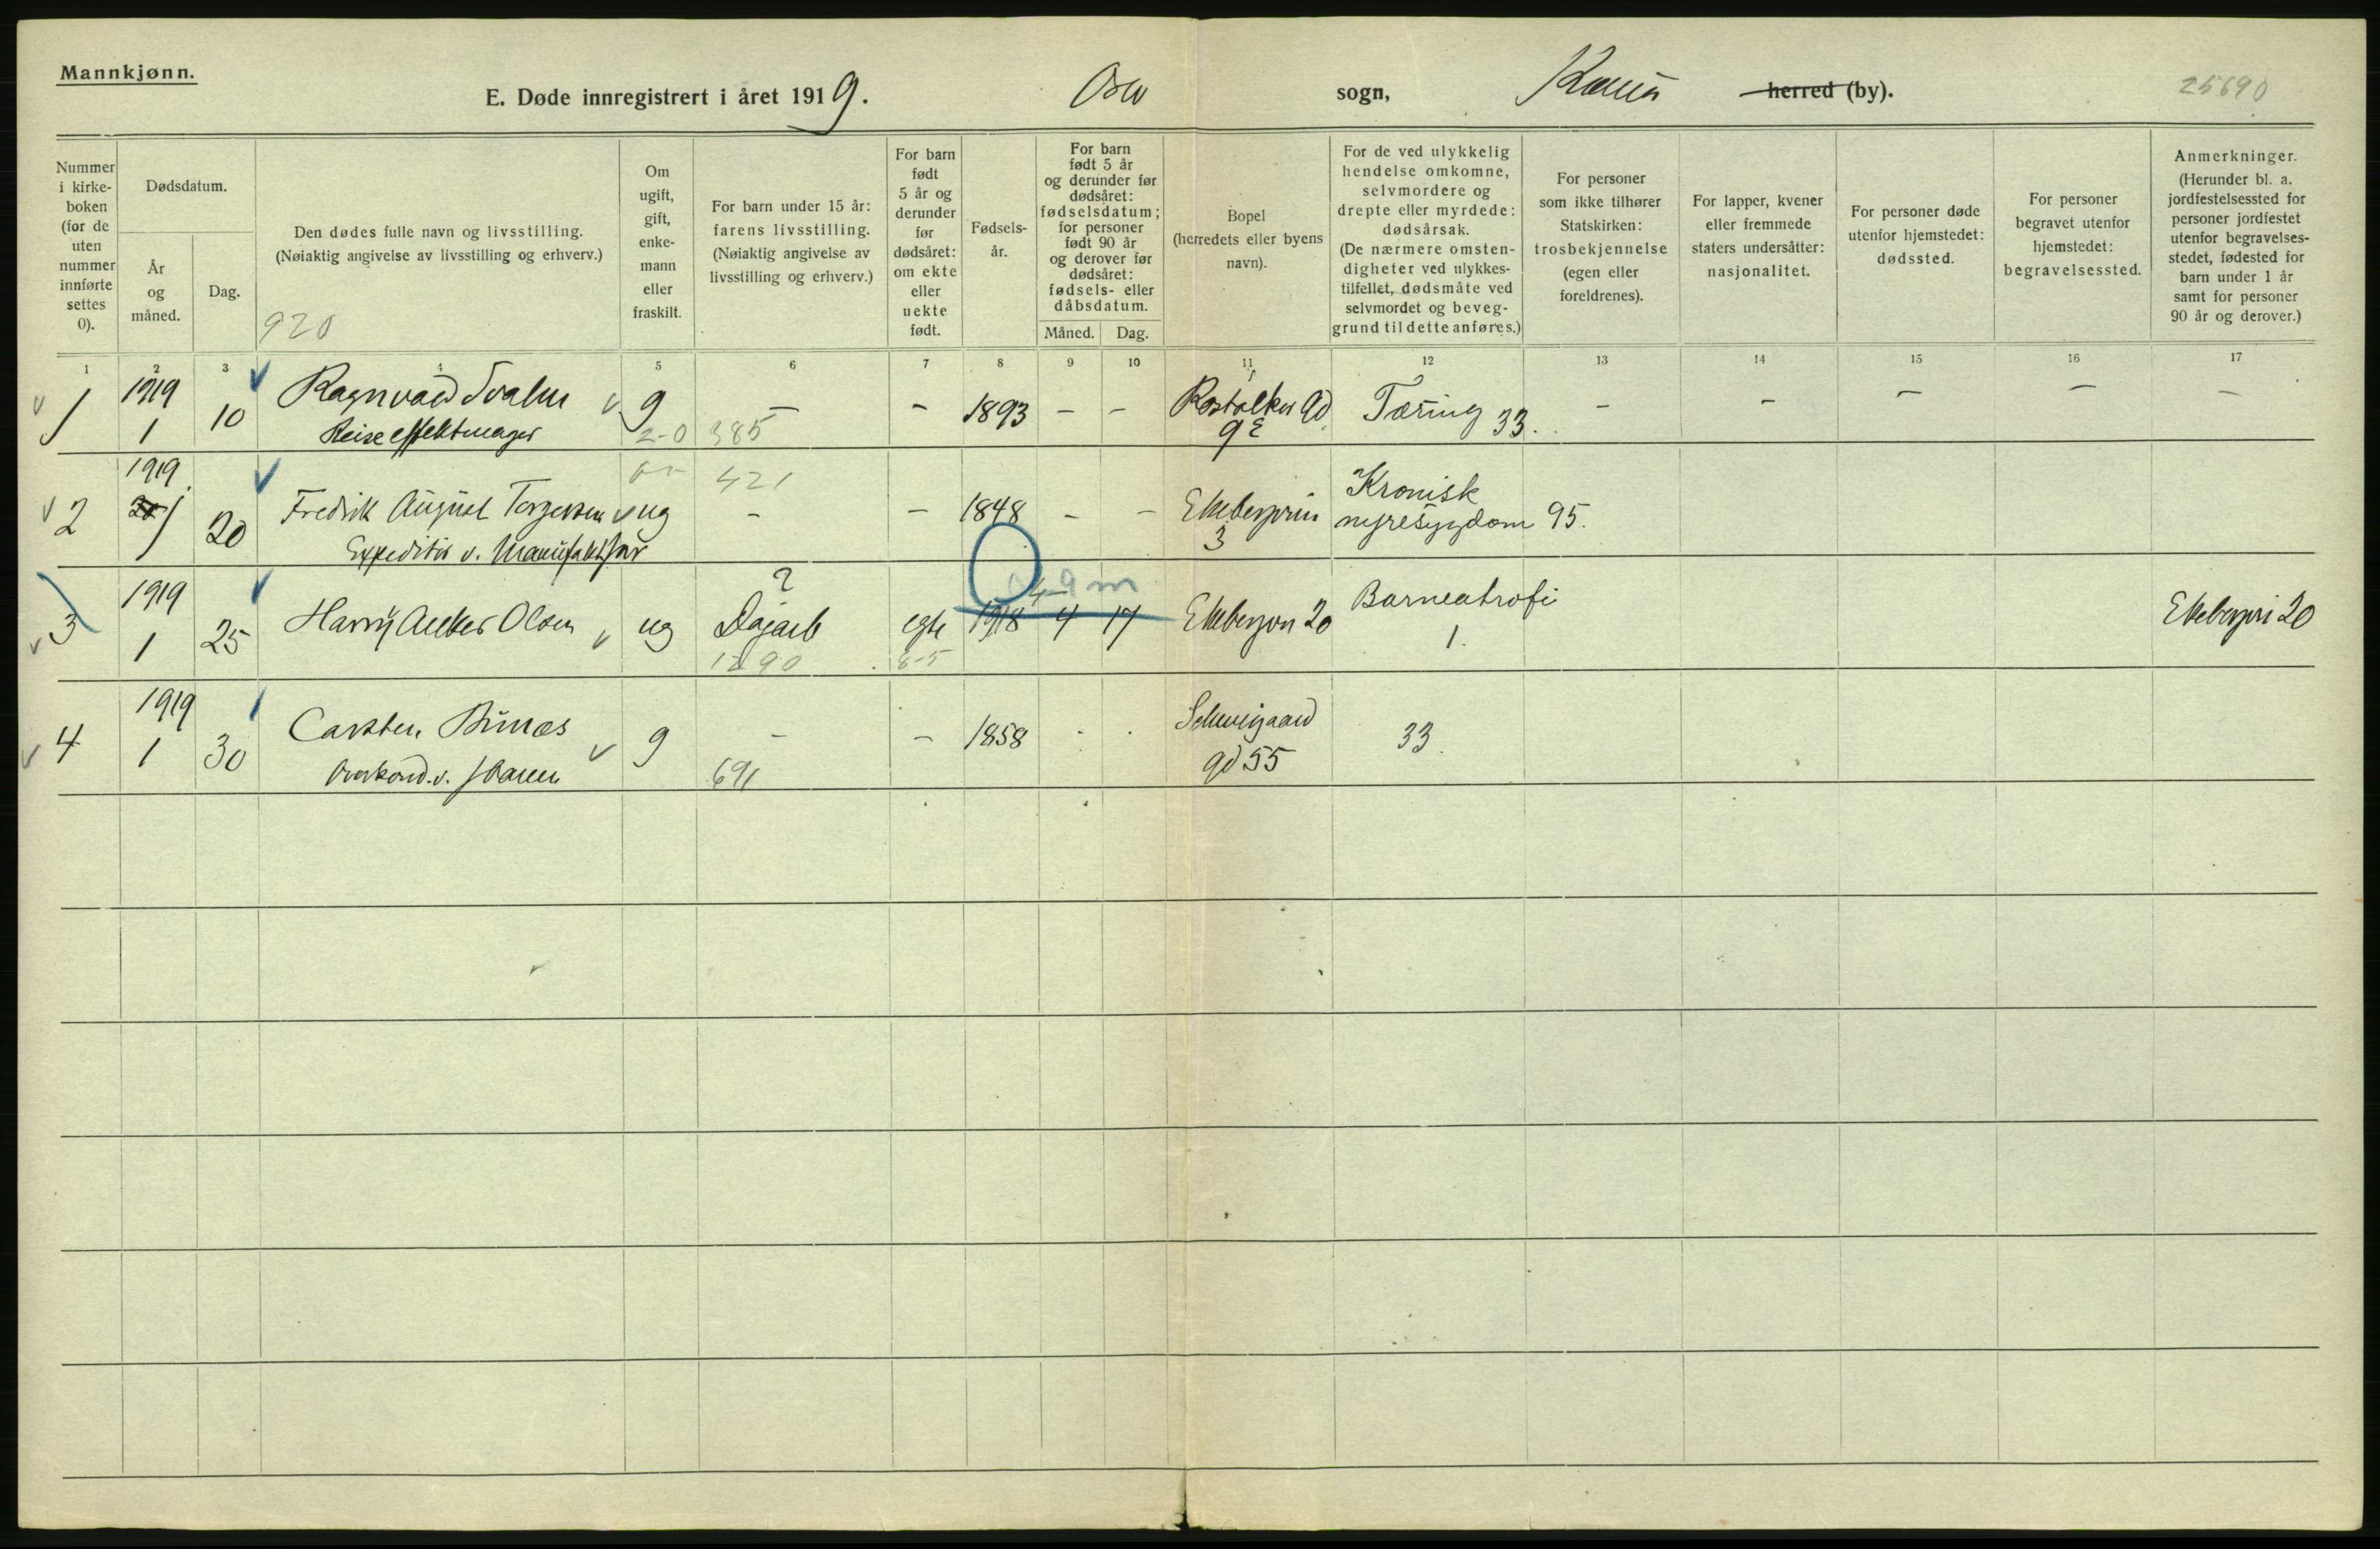 Mannkjønn.
E. Døde innregistrert i året 1919.
Oslo
sogn,
herred (by).
25690
Nummer
i kirke-
boken
(for de
uten
nummer
innførte
settes
0).
Dødsdatum.
År
og
måned.
Dag.
Den dødes fulle navn og livsstilling.
(Nøiaktig angivelse av livsstilling og erhverv.)
920
Om
ugift,
gift,
enke-
mann
eller
fraskilt.
For barn under 15 år:
farens livsstilling.
(Nøiaktig angivelse av
livsstilling og erhverv.)
For barn
født
5 år og
derunder
før
dødsåret:
om ekte
eller
uekte
født.
Fødsels-
år.
For barn
født 5 år
og derunder før
dødsåret:
fødselsdatum;
for personer
født 90 år
og derover før
dødsåret:
fødsels- eller
dåbsdatum.
Måned.
Dag.
Bopel
(herredets eller byens
navn).
For de ved ulykkelig
hendelse omkomne,
selvmordere og
drepte eller myrdede:
dødsårsak.
(De nærmere omsten-
digheter ved ulykkes-
tilfellet, dødsmåte ved
selvmordet og beveg-
grund til dette anføres.)
For personer
som ikke tilhører
Statskirken:
trosbekjennelse
(egen eller
foreldrenes).
For lapper, kvener
eller fremmede
staters undersåtter:
nasjonalitet.
For personer døde
utenfor hjemstedet:
dødssted.
For personer
begravet utenfor
hjemstedet:
begravelsessted.
Anmerkninger.
(Herunder bl. a.
jordfestelsessted for
personer jordfestet
utenfor begravelses-
stedet, fødested for
barn under 1 år
samt for personer
90 år og derover.)
1 2 3 4 5 6 7 8 9 10 11 12 13 14 15 16 17
1 1919 10 Ragnvald g - - 1893 - - Tæring 33. - - - - -
1 Reiseeffektmager 2-0 385 9 E
1919 421
2 1 20 Fredrik August Torgersen ug - - 1848 - - Kronisk
Expeditør v. 3 nyresygdom 95.
?
4 9 m
3 1919 25 Harry Olsen ug Dagarb egte 1918 4 17 20 Barneatrofi 20
1 1290 8-5 1.
4 1919 30 Carsten g - - 1858 Schweigaard 33.
1 691 gd 55